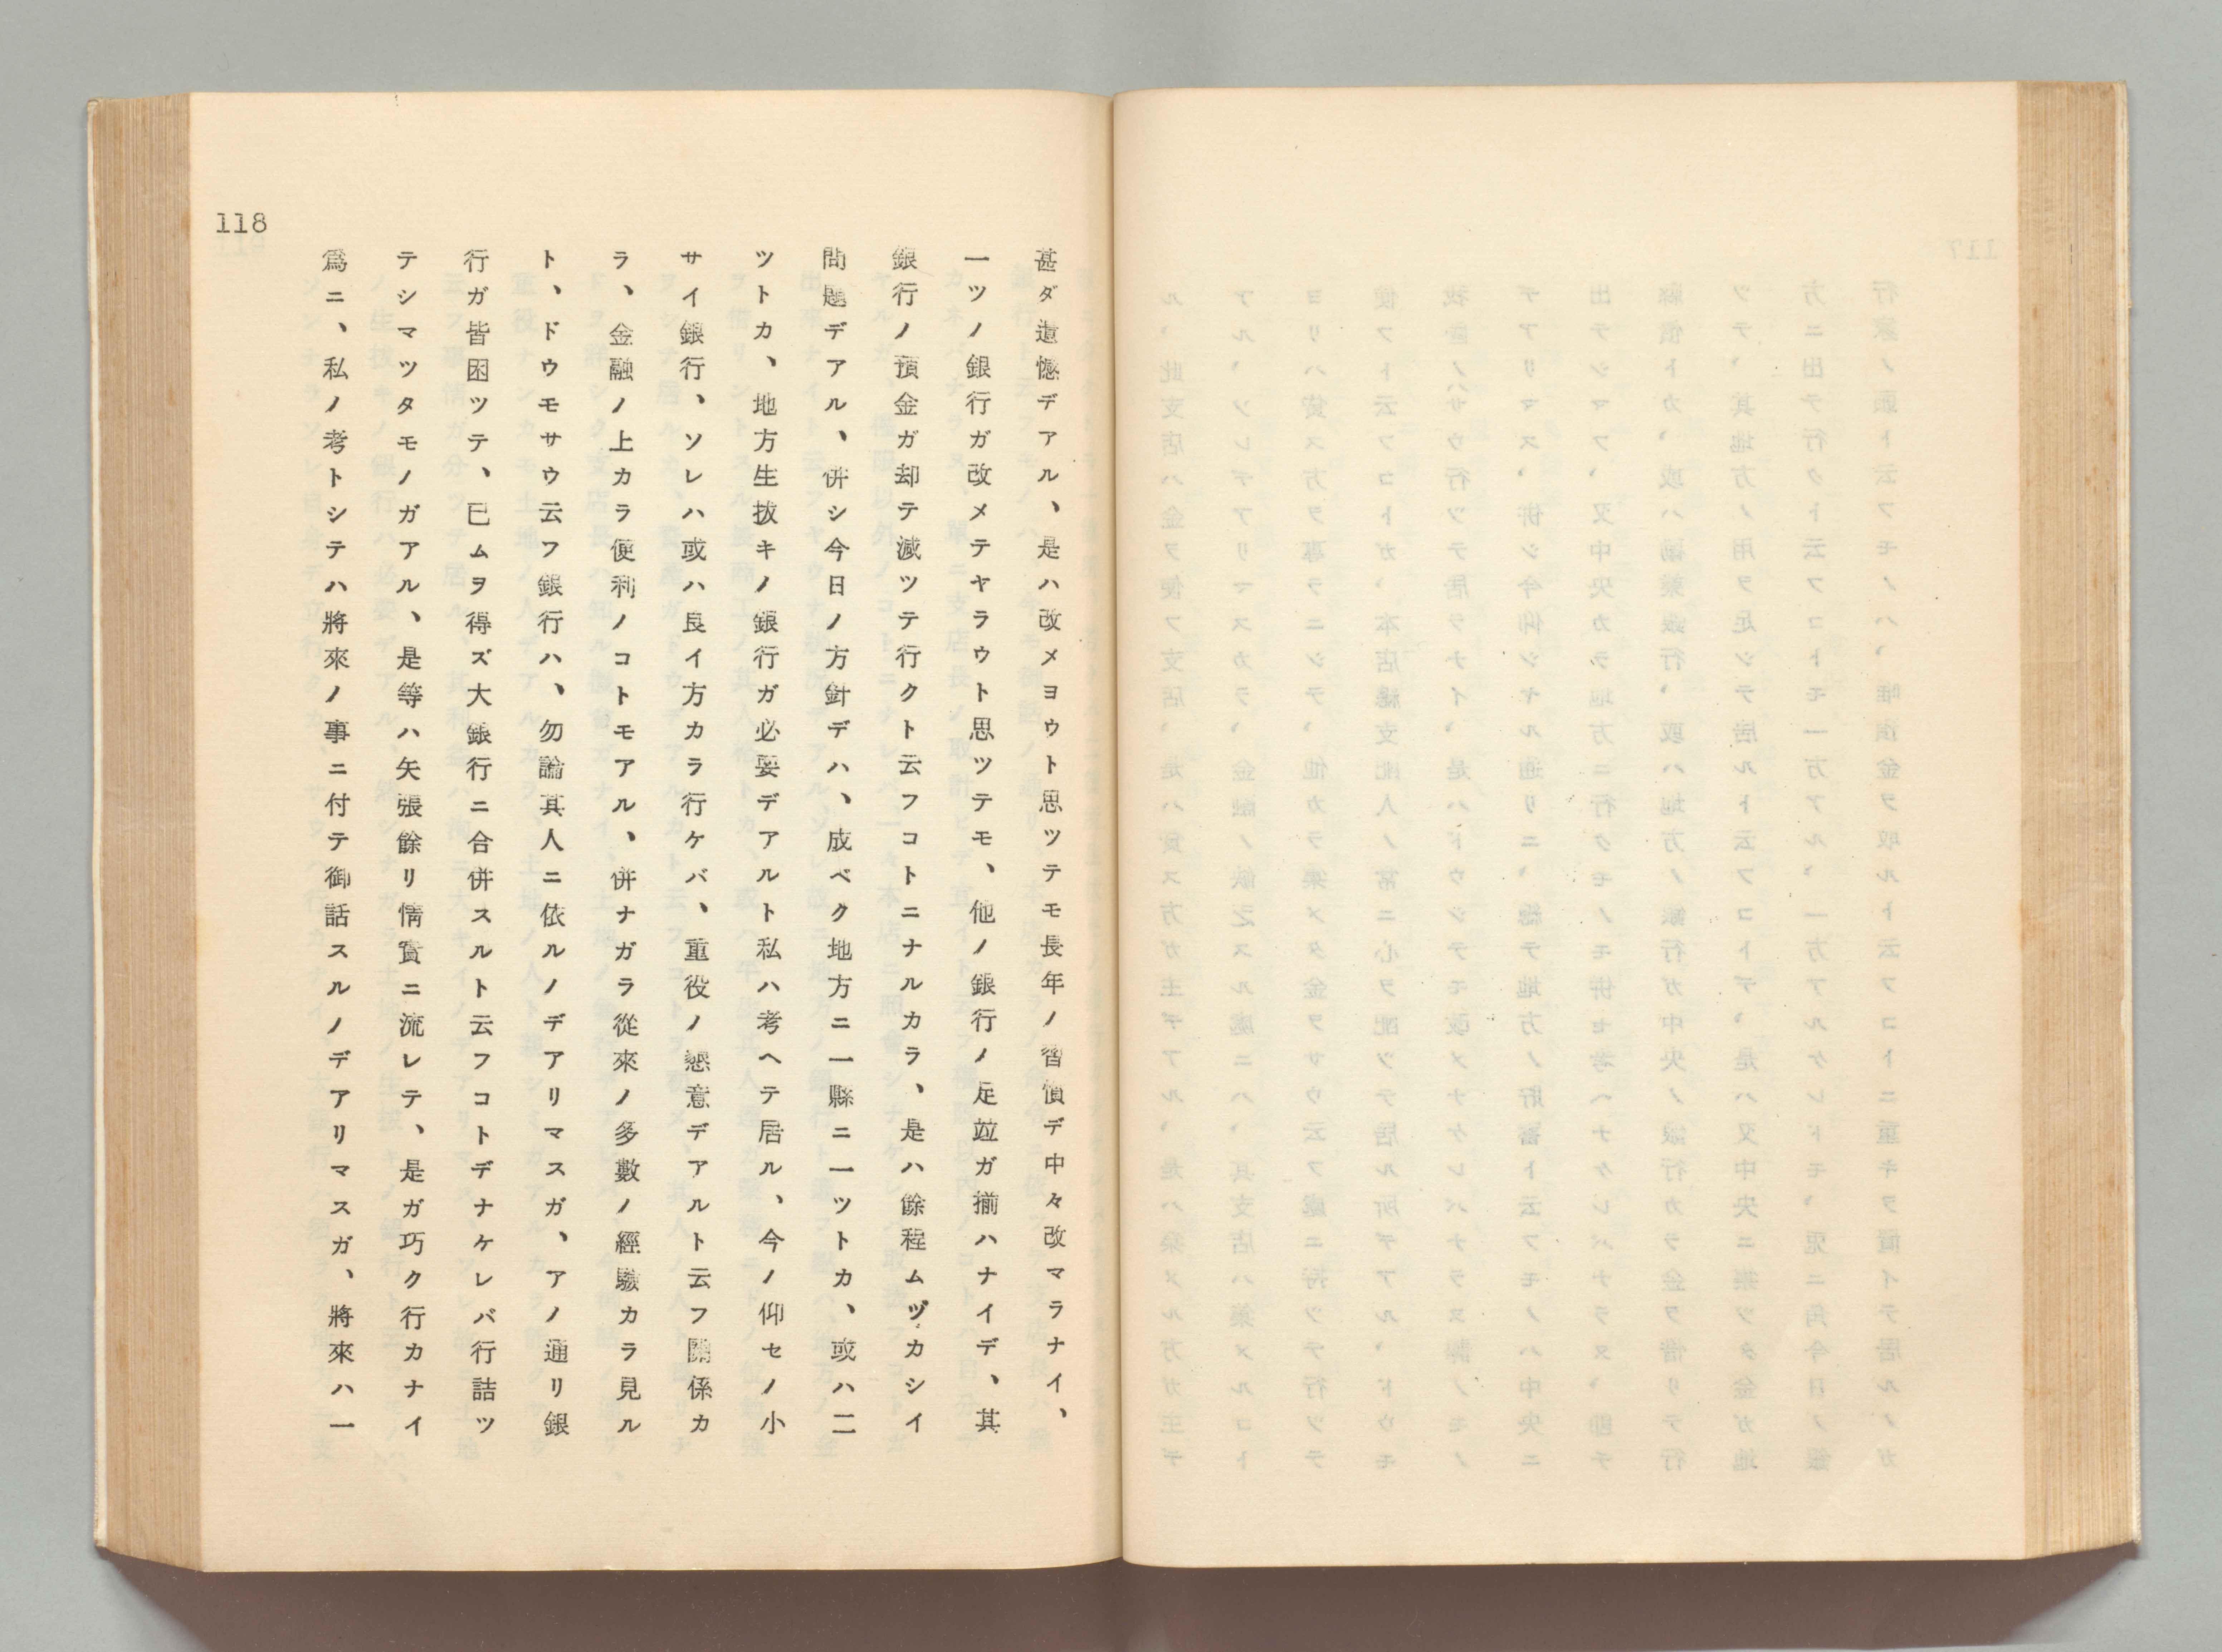 甚ダ遺憾デアル、是ハ改メヨウト思ツテモ長年ノ習慣デ中々改マラナイ、
一ツノ銀行ガ改メテヤラウト思ツテモ、他ノ銀行ノ足竝ガ揃ハナイデ、其
銀行ノ預金ガ却テ減ツテ行クト云フコトニナルカラ、是ハ餘程ムヅカシイ
問題デアル、併シ今日ノ方針デハ、成ベク地方ニ一縣ニ一ツトカ、或ハ二
ツトカ、地方生拔キノ銀行ガ必要デアルト私ハ考ヘテ居ル、今ノ仰セノ小
サイ銀行、ソレハ或ハ良イ方カラ行ケバ、重役ノ懇意デアルト云フ關係カ
ラ、金融ノ上カラ便利ノコトモアル、併ナガラ從來ノ多數ノ經驗カラ見ル
ト、ドウモサウ云フ銀行ハ、勿論其人ニ依ルノデアリマスガ、アノ通リ銀
行ガ皆困ツテ、已ムヲ得ズ大銀行ニ合併スルト云フコトデナケレバ行詰ツ
テシマツタモノガアル、是等ハ矢張餘リ情實ニ流レテ、是ガ巧ク行カナイ
爲ニ、私ノ考トシテハ將來ノ事ニ付テ御話スルノデアリマスガ、將來ハ一
118